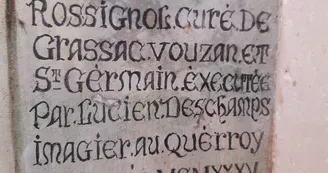 ROSSIGNOL.CURÉ.DE
GRASSAC.VOUZAN.ET
ST.GERMAIN.EXECUTÉE
PAR.LUCIEN.DESCHAMPS
IMAGIER.AU.QUÉRROY
MCMXXXV